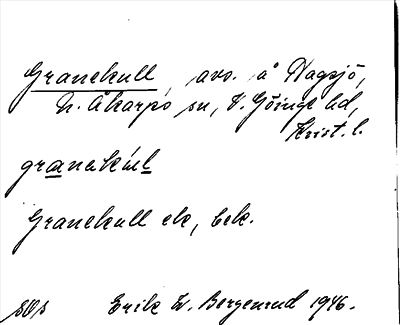 Granekull, avs. å Nagsjö,
N. Åkarps sn, V. Göinge hd,
Krist. l.
granəkúl
Granekull ek, bek.
SOs Erik W. Bergenrud 1946.